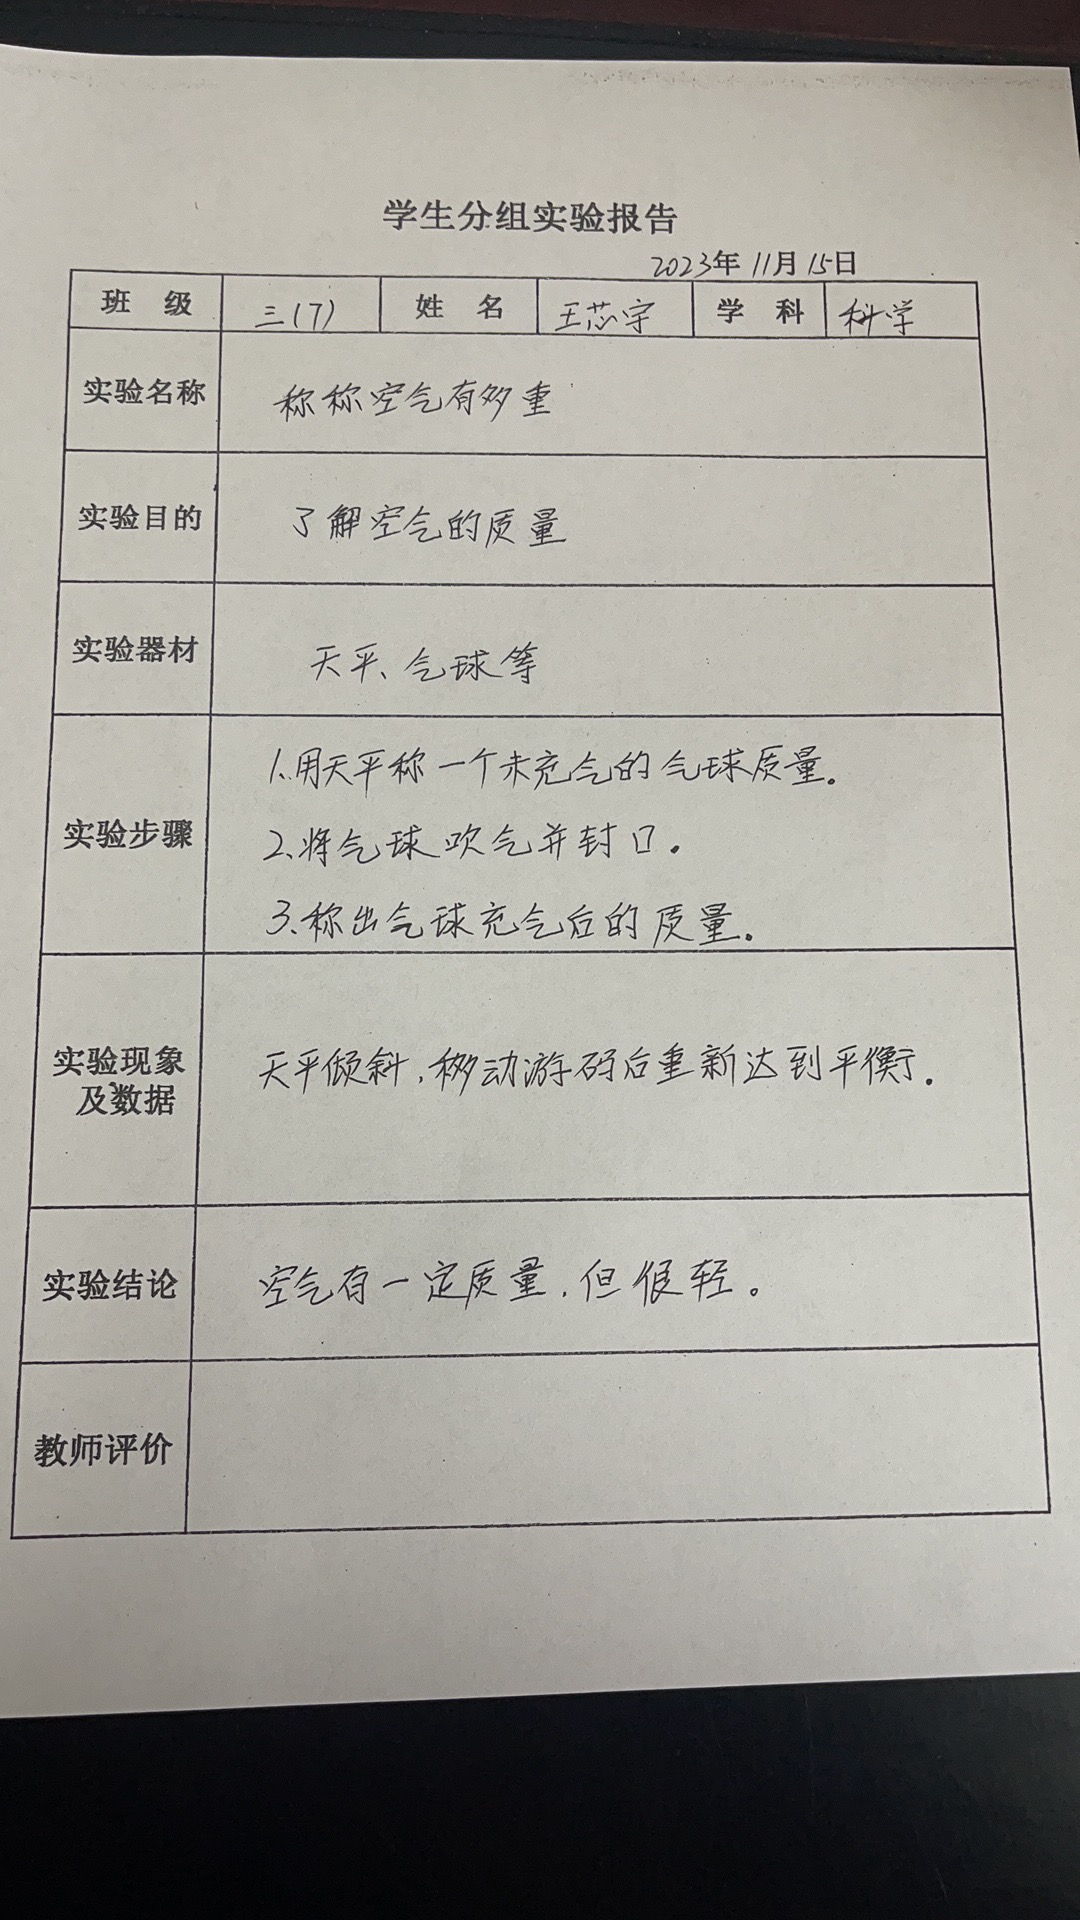 学生分组实验报告
2023年11月15日
班 级 三(7) 姓 名 王芯宇 学 科 科学
实验名称 称称空气有多重
实验目的 了解空气的质量
实验器材 天平、气球等
1.用天平称一个未充气的气球质量。
实验步骤 2.将气球吹气并封口。
3.称出气球充气后的质量。
实验现象
及数据 天平倾斜,移动游码后重新达到平衡。
实验结论 空气有一定质量,但很轻。
教师评价